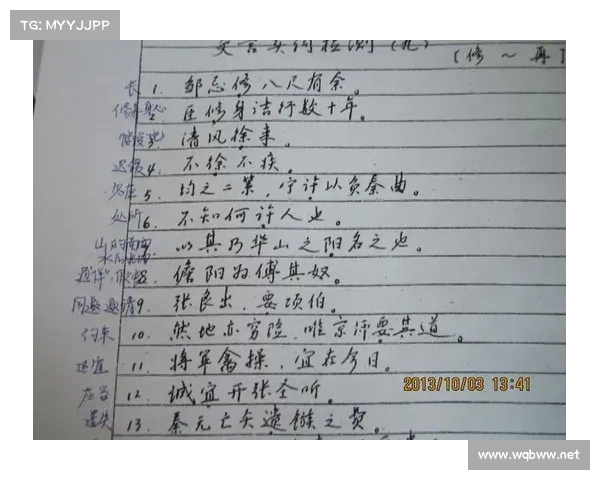 TG: MYYJJPP
文言实词检测（九）
[修～再]
长 1. 邹忌修八尺有余。
2. 臣修身洁行数十年。
3. 清风徐来。
4. 不徐不疾。
5. 均之二策，宁许以负秦曲。
处所 6. 不知何许人也。
7. 以其乃华山之阳名之也。
8. 儋阳为傅其奴。
9. 张良出，要项伯。
约束 10. 然地亦穷险，唯京师要其道。
适宜 11. 将军禽操，宜在今日。
应当 12. 诚宜开张圣听。
遗失 13. 秦无亡矢遗镞之费。
2013/10/03 13:41
www.wqbww.net